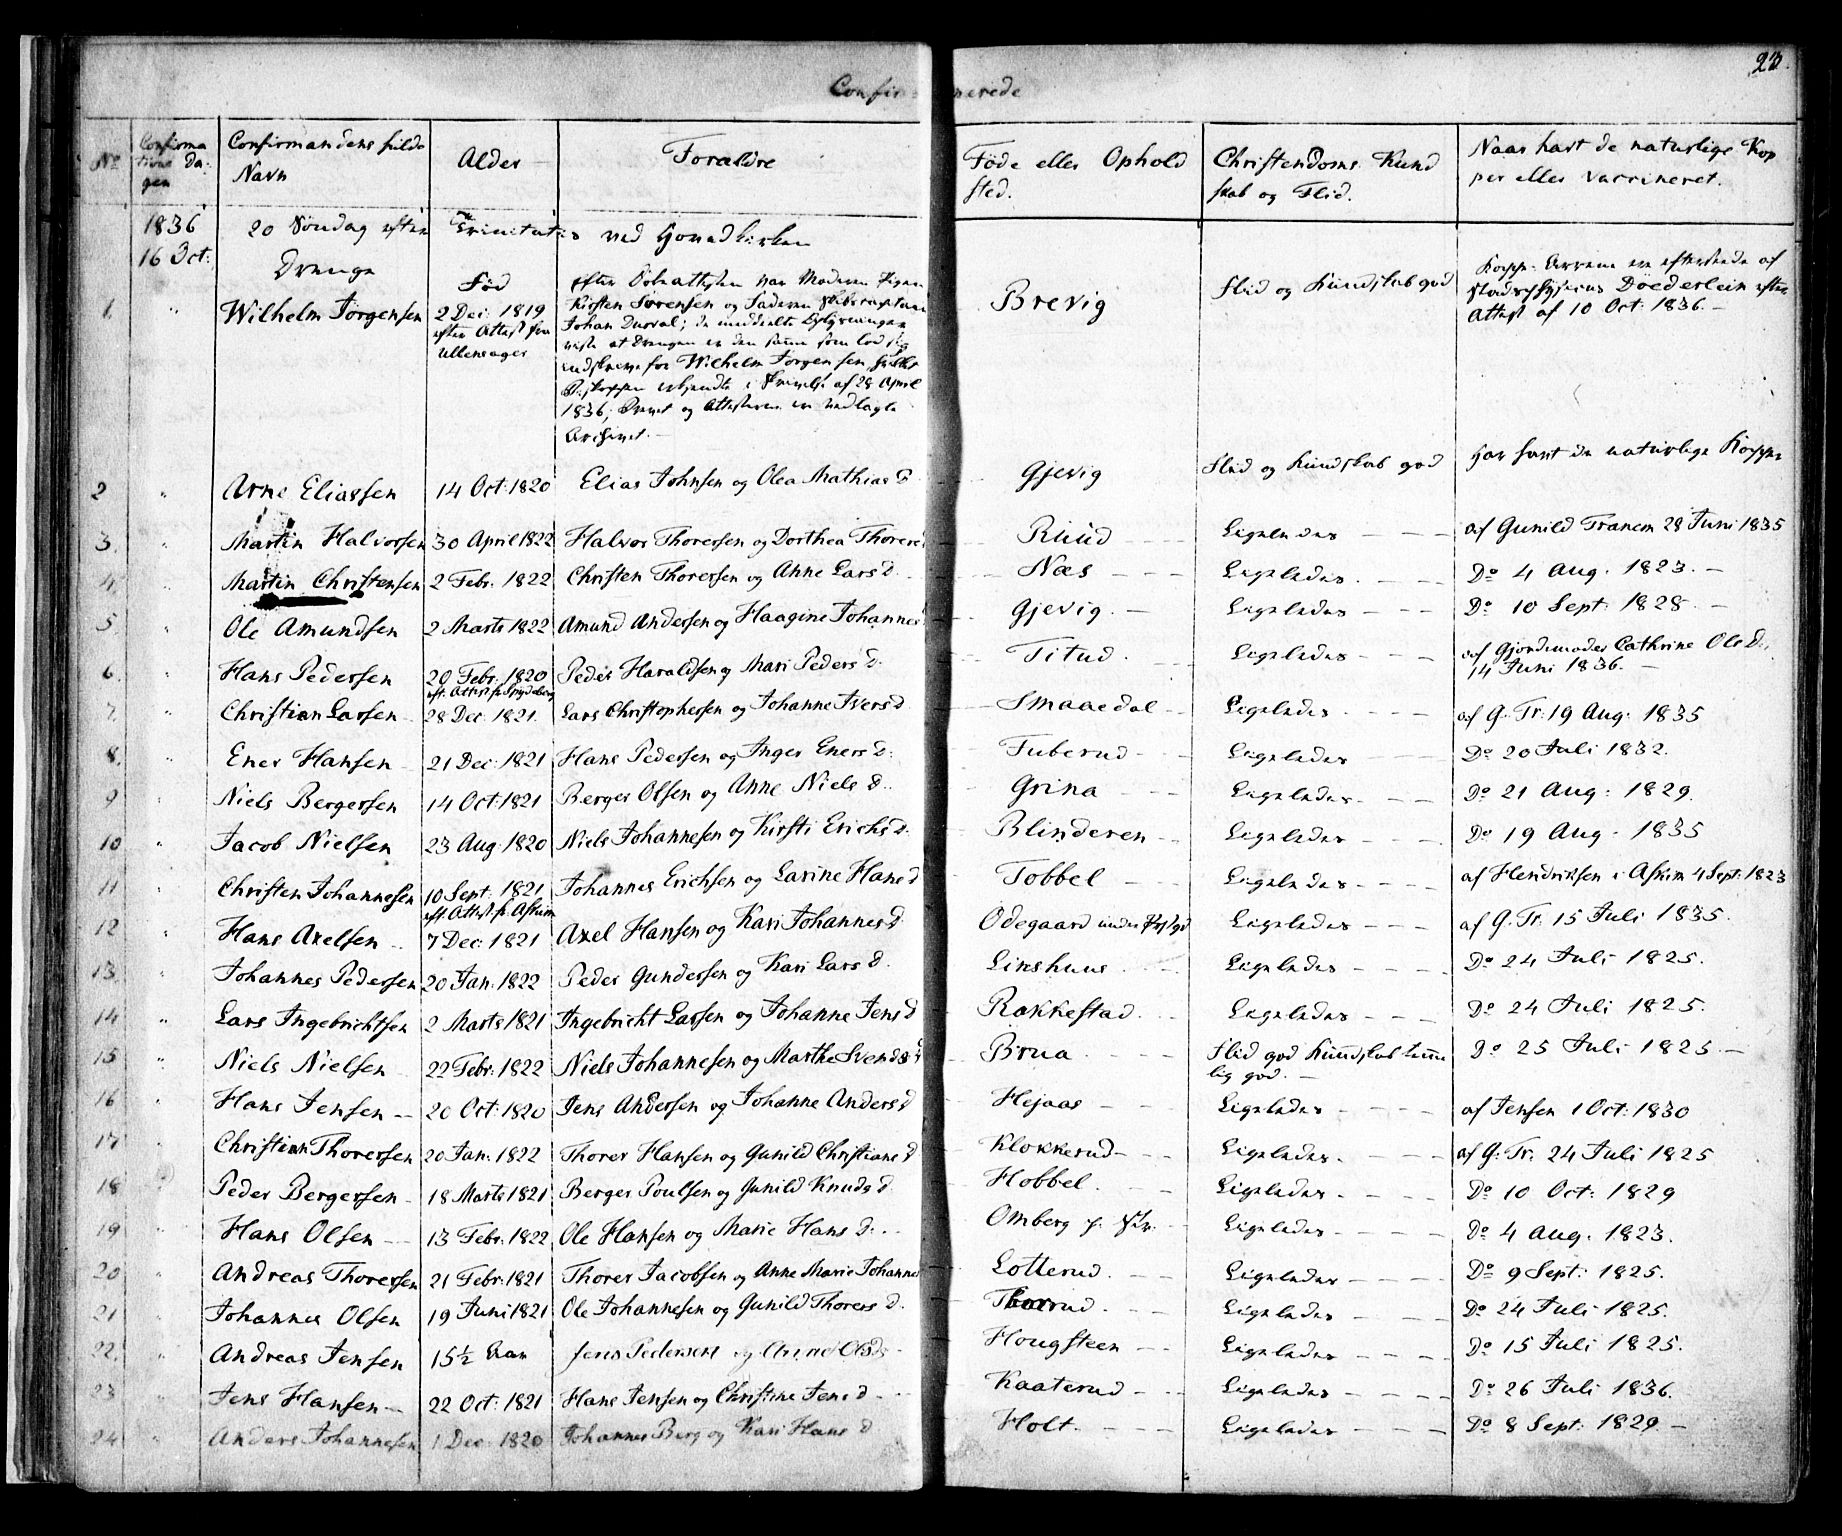 23.
Confirmerede
No | Confirmations Dagen | Confirmandens fulde Navn | Alder | Forældre | Føde eller Ophold sted. | Christendoms Kundskab og Flid. | Naar havt de naturlige Kopper eller vaccineret.
1836 20 Søndag efter Trinitatis ved Hovedkirken
16 Oct: Drenge Fød
1. " Wilhelm Jørgensen | 2 Dec: 1819 efter Attest fra Ullensager | efter Døbeattesten var Moderen Pigen | Brevig | Flid og Kundskab god | Kopp-Arrene ere efterseede af
Kirsten Sørensen og Faderen Skibscaptain
Johan Duoval; de meddeelte Oplysninger
viste at Drengen er den samme som lod sig
indskrive for Wilhelm Jørgensen, hvilket
Biskoppen erkjendte i Skrivelse af 28 April
1836; Brevet og Attesterne ere vedlagte
Archivet. —
Døederlein efter
Attest af 10 Oct: 1836. —
2 " Arne Eliassen | 14 Oct: 1820 | Elias Johnsen og Olea Mathias D | Gjevig | Flid og Kundskab god | Har havt de naturlige Kopper
3. " Martin Halvorsen | 30 April 1822 | Halvor Thoresen og Dorthea Thores | Ruud | Ligeledes | af Gunild Tranem 28 Juni 1835
4. " Martin Christensen | 2 Febr. 1822 | Christen Thoresen og Anne Lars d. | Næs | Ligeledes | Do 4 Aug. 1823. —
5 " Ole Amundsen | 2 Marts 1822 | Amund Andersen og Haagine Johannes | Gjevig. — | Ligeledes | Do 10 Sept: 1828. —
6. " Hans Pedersen | 20 Febr. 1820 eft. Attest fr. Spydeberg | Peder Haraldsen og Mari Peders d. | Titud. | Ligeledes | af Gjordemoder Cathrine Ols D., 14 Juni 1836. —
7. " Christian Larsen | 28 Dec: 1821. | Lars Christophersen og Johanne Ivers d. | Smaaedal | Ligeledes | af G. Tr: 19 Aug: 1835
8. " Ener Hansen | 21 Dec: 1821 | Hans Pedersen og Inger Eners d. | Tuberud | Ligeledes | Do 20 Juli 1832.
9 " Niels Bergersen | 14 Oct: 1821 | Berger Olsen og Anne Niels d. | Grina | Ligeledes | Do 21 Aug: 1829.
10 " Jacob Nielsen | 23 Aug: 1820 | Niels Johannesen og Kirsti Erichs d. | Blinderen | Ligeledes | Do 19 Aug: 1835
11 " Christen Johannesen | 10 Sept: 1821 eft. Attest fr. Askim | Johannes Erichsen og Larine Hans d | Tobbel | Ligeledes | af Hendriksen i Askim 4 Sept: 1823
12 " Hans Axelsen | 7 Dec: 1821 | Axel Hansen og Kari Johannes d. | Odegaard under | Ligeledes | af G. Tr. 15 Juli 1835.
13. " Johannes Pedersen | 20 Jan: 1822 | Peder Gundersen og Kari Lars d. | Linshuus | Ligeledes | Do 24 Juli 1825.
14 " Lars Ingebrichtsen | 2 Marts 1821 | Ingebricht Larsen og Johanne Jens d | Rakkestad. | Ligeledes | Do 24 Juli 1825.
15 " Niels Nielsen | 22 Febr: 1822 | Niels Johannesen og Marthe Svends d | Brua | Flid god Kundskab temmelig god. — | Do 25 Juli 1825. —
16 " Hans Jensen | 20 Oct: 1820 | Jens Andersen og Johanne Anders d | Hejaas | Ligeledes | af Jensen 1 Oct: 1830
17 " Christian Thoresen | 20 Jan: 1822 | Thorer Hansen og Gunild Christians d | Klokkerud | Ligeledes. | af G. Tr. 24 Juli 1825
18 " Peder Bergersen | 18 Marts 1821 | Berger Poulsen og Gunild Knuds d. | Hobbel. | Ligeledes | Do 10 Oct: 1829
19 " Hans Olsen | 13 Febr: 1822 | Ole Hansen og Marie Hans d. | Omberg | Ligeledes | Do 4 Aug. 1823.
20 " Andreas Thoresen | 21 Febr: 1821 | Thorer Jacobsen og Anne Marie Johannes | Lotterud | Ligeledes | Do 9 Sept: 1825.
21 " Johannes Olsen | 19 Juni 1821 | Ole Johannesen og Gunild Thorers d. | | Ligeledes | Do 24 Juli 1825.
22. " Andreas Jensen | 15½ Aar | Jens Pedersen og Olsd | Hougsteen | Ligeledes | Do 15 Juli 1825.
23 " Jens Hansen | 22 Oct: 1821 | Hans Jensen og Christine Jens d | Kaaterud | Ligeledes | Do 26 Juli 1836.
24 " Anders Johannesen | 1 Dec: 1820 | Johannes Berg og Kari Hans d | Holt. | Ligeledes | Do 8 Sept: 1829 —